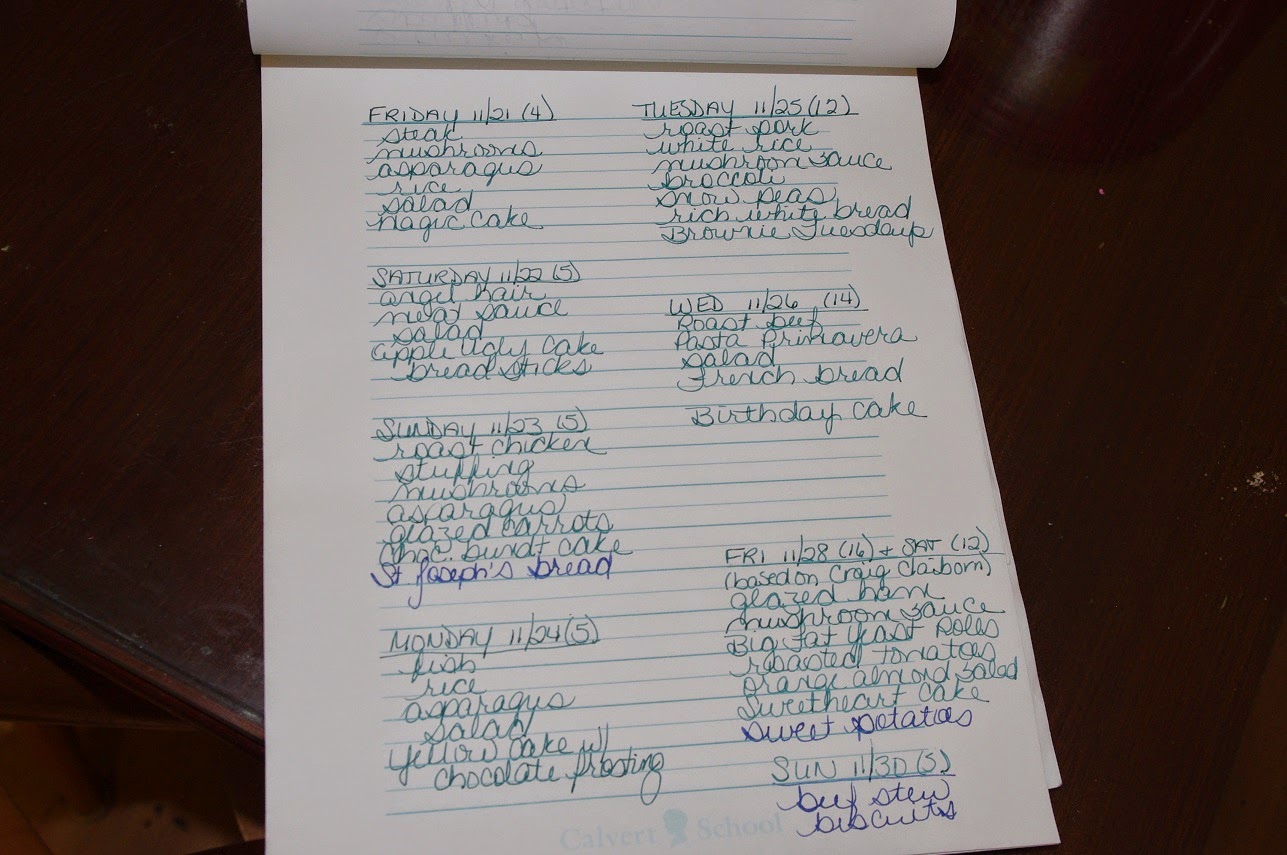 FRIDAY 11/21 (4)
steak
mushrooms
asparagus
rice
salad
Magic Cake
SATURDAY 11/22 (5)
angel hair
meat sauce
salad
apple Ugly Cake
bread sticks
SUNDAY 11/23 (5)
roast chicken
stuffing
mushrooms
asparagus
glazed carrots
Choc. bundt cake
St Joseph's bread
MONDAY 11/24 (5)
fish
rice
asparagus
salad
yellow cake w/
chocolate frosting
TUESDAY 11/25 (12)
roast pork
white rice
mushroom sauce
broccoli
snow peas
rich white bread
Brownie Tuesday
WED 11/26 (14)
Roast beef
Pasta Primavera
salad
French bread
Birthday cake
FRI 11/28 (16) + SAT (12)
(based on Craig Claiborn)
glazed ham
mushroom sauce
Big fat yeast Roles
roasted tomatoes
orange almond salad
Sweetheart Cake
sweet potatoes
SUN 11/30 (5)
beef stew
biscuits
Calvert School